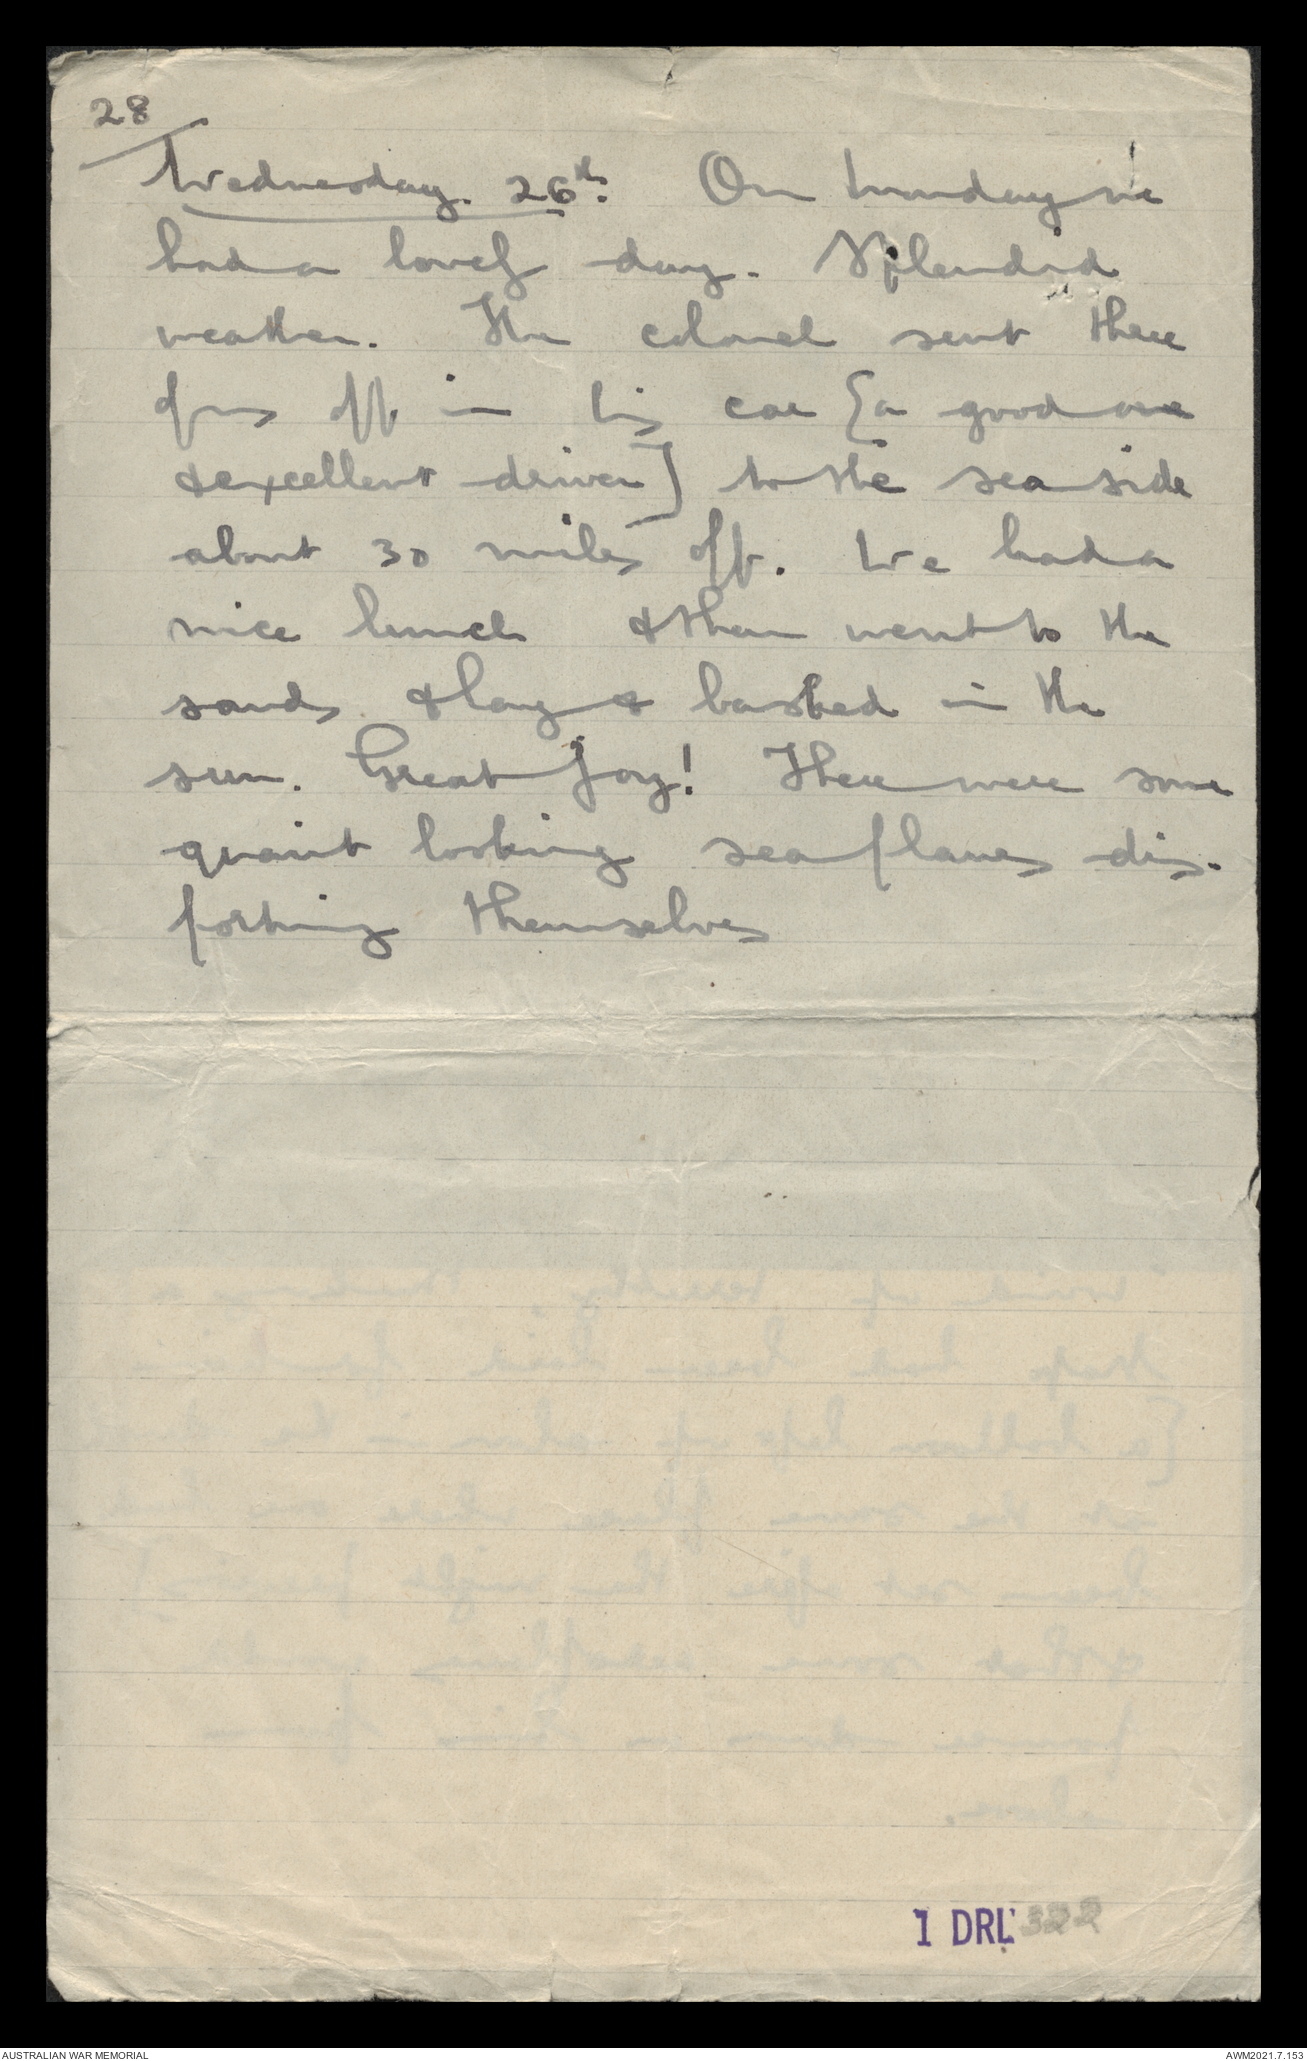 28
Wednesday. 26th. On Munday we
had a lovely day. Splendid
weather. The colonel sent three
of us off in his car [a good one
& excellent driver] to the sea side
about 30 miles off. We had a
nice lunch & then went to the
sands & lay & basked in the
sun. Great Joy! There were some
quaint looking sea planes dis-
porting themselves
1 DRL 322
AUSTRALIAN WAR MEMORIAL
AWM2021.7.153